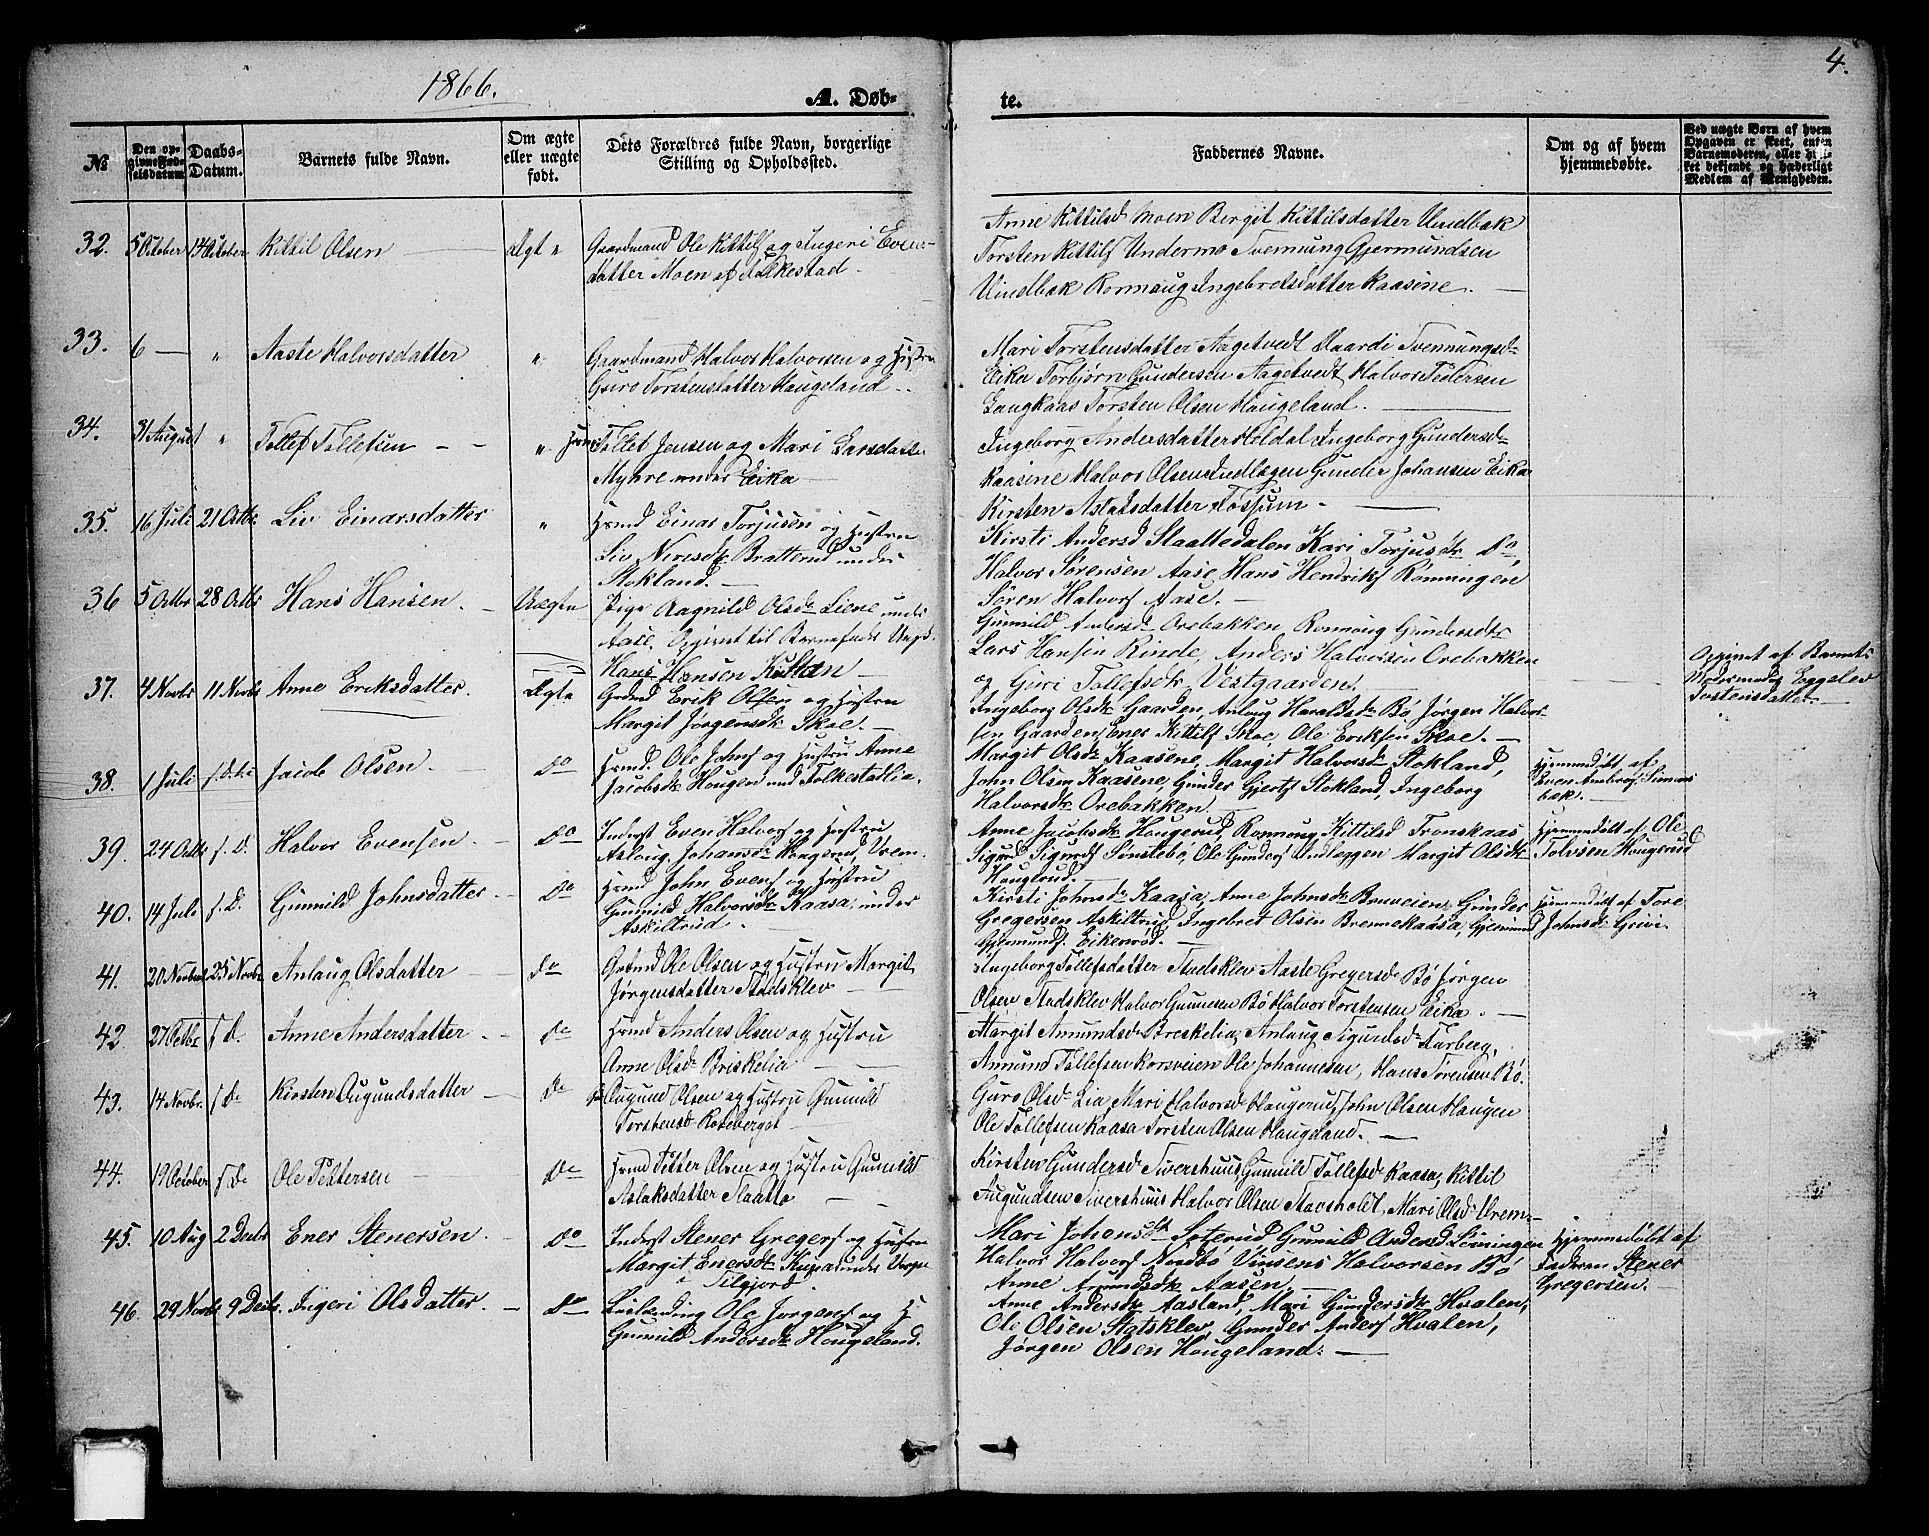 1866.
4.
A. Døb-
te.
№
Den op-
givne Fød-
selsdatum
Daabs-
Datum.
Barnets fulde Navn.
Om ægte
eller uægte
født.
Dets Forældres fulde Navn, borgerlige
Stilling og Opholdssted.
Faddernes Navne.
Om og af hvem
hjemmedøbte.
Ved uægte Børn af hvem
Opgaven er skeet, enten
Barnemoderen, eller
ket bekjendt og hæderligt
Medlem af Menigheden.
32. 5 October 14 October Kittil Olsen Ægt " Gaardmand Ole Kittils og Ingeri Evens-
datter Moen af Folkestad.
Anne Kittilsd Moen Bergit Kittilsdatter Vindbæk
Torsten Kittils Undermo Tvennung Gjermundsen
Vindbæk Ronnaug Ingebretsdatter Kaasine.
33. 6 " Aaste Halvorsdatter " Gaardmand Halvor Halvorsen og Hustru
Guro Torstensdatter Haugeland.
Mari Torstensdatter Aagetvedt Haardi Tvennungsd
Eika Torbjørn Gundersen Aagetvedt Halvor Pedersen
Langkaas Torsten Olsen Haugeland.
34. 31 August " Tollef Tollefsen " Hrmd Tollef Jensen og Mari Larsdatter
Myhre under Eika
Ingeborg Andersdatter Holdal Ingeborg Gundersd
Kaasine Halvor Olsen Gunder Johansen Eika
Kirsten Aslaksdatter Fossum
35. 16 Juli 21 Octbr Liv Einarsdatter " Hrmd Einar Torjusen og Hustru
Liv Bratterud under
Stokland.
Kirsti Andersd Slaattedalen Kari Torjusdt Do,
Halvor Sørensen Aase, Hans Hendriks Rønningen
Søren Halvors Aase.
36 5 Octbr 28 Octbr Hans Hansen. Uægte Pige Ragnild Olsdt Liene under
Aase. Opgivet til Barnefader
Hans Hansen
Gunnild Andersdt Orebakken, Ronnoug Gundersdt
Lars Hansen Rinde, Anders Halvorsen Orebakken
og Guri Tollefsdt Vestgaarden.
Opgivet af Barnets
Eggelev
Tostensdatter.
37. 4 Novbr 11 Novbr Anne Eriksdatter. Ægte Grdmd Erik Olsen og Hustru
Margit Jørgensdt Skoe.
Ingeborg Olsdt Gaarden, Anlaug Haraldsdt Bø Jørgen Halvor-
sen Gaarden, Ener Kittils Skoe, Ole Eriksen Skoe.
38. 1 Juli f. D. Jacob Olsen. Do Hrmd. Ole Johns og Hustru Anne
Jacobsdt Hougen und Folkestadlia.
Margit Olsdt Kaasene, Margit Halvorsdt Stokland,
John Olsen Kaasene, Gunder Gjerts Stokland, Ingeborg
Halvorsdt Orebakken.
Hjemmedøbt af
Even
bæk.
39. 24 Octbr f. D. Halvor Evensen. Do Inderst Even Halvors og Hustru
Aslaug Johansdt Hougerud, Vrem.
Anne Jacobsdt Hougerud, Ronnoug Kittilsd Tronskaas
Sigurd Sigurds Sønstebø, Ole Gunders Margit Olsdt
Hougerud.
Hjemmedøbt af Ole
Tolvsen Hougerud
40. 14 Juli f. D. Gunnild Johnsdatter Do Hrmd John Evens og Hustru
Gunnild Halvorsdt Kaasa, under
Askiltrud.
Kirsti Johnsdt Kaasa, Anne Johnsdt Gunder
Gregersen Askiltrud, Ingebret Olsen Brennekaasa, Gjermund
Gjermunds Eikenrød.
Hjemmedøbt af Tore
Johnsdt Grivi.
41. 20 Novbr 25 Novbr Anlaug Olsdatter Do Grbmd Ole Olsen og Hustru Margit
Jørgensdatter Stadsklev
Ingeborg Tollefsdatter Stadsklev Aaste Gregersd Bø Jørgen
Olsen Stadsklev Halvor Gunnersen Bø Halvor Torstensen Eika.
42. 27 Octbr f D. Anne Andersdatter Do Hrmd Anders Olsen og Hustru
Anne Olsd Briskelia
Margit Amundsd Breskelia, Anlaug Sigurdsd Farberg,
Amund Tollefsen Korsveien Ole Johannesen, Hans Sørensen Bø.
43. 14 Novbr. f D. Kirsten Augundsdatter Do Augund Olsen og Hustru Gunnild
Torstensd Roseberget
Guro Olsd Lia Mari Halvorsd Haugerud, John Olsen Haugen
Ole Tollefsen Kaasa Torsten Olsen Haugeland.
44. 19 October f D. Ole Pettersen Do Hrmd Petter Olsen og Hustru Gunnild
Aslaksdatter Slaatta
Kirsten Gundersd Tvershuus Gunnild Tollefsd Kaasa, Kittil
Augundsen Tvershuus Halvor Olsen Stavsholdt, Mari Olsd Vrem
45. 10 Aug 2 Decbr Ener Stenersen. Do Inderst Stener Gregers og Hustru
Margit Enersdt under
i Tilgjord.
Mari Johansdt Soterud Gunnild Andersd
Halvor Halvors Nordbø Vinsens Halvorsen Bø
Anne Amundsdt Aasen
Hjemmedøbt af
Faderen Stener
Gregersen.
46. 29 Novbr 9 Decbr. Ingeri Olsdatter. Do Ole Jorgens og H
Gunnild Andersdt Hougeland.
Anne Andersdt Aasland, Mari Gundersdt Hvalen,
Ole Olsen Statsklev, Gunder Anders Hvalen,
Jørgen Olsen Hougeland.